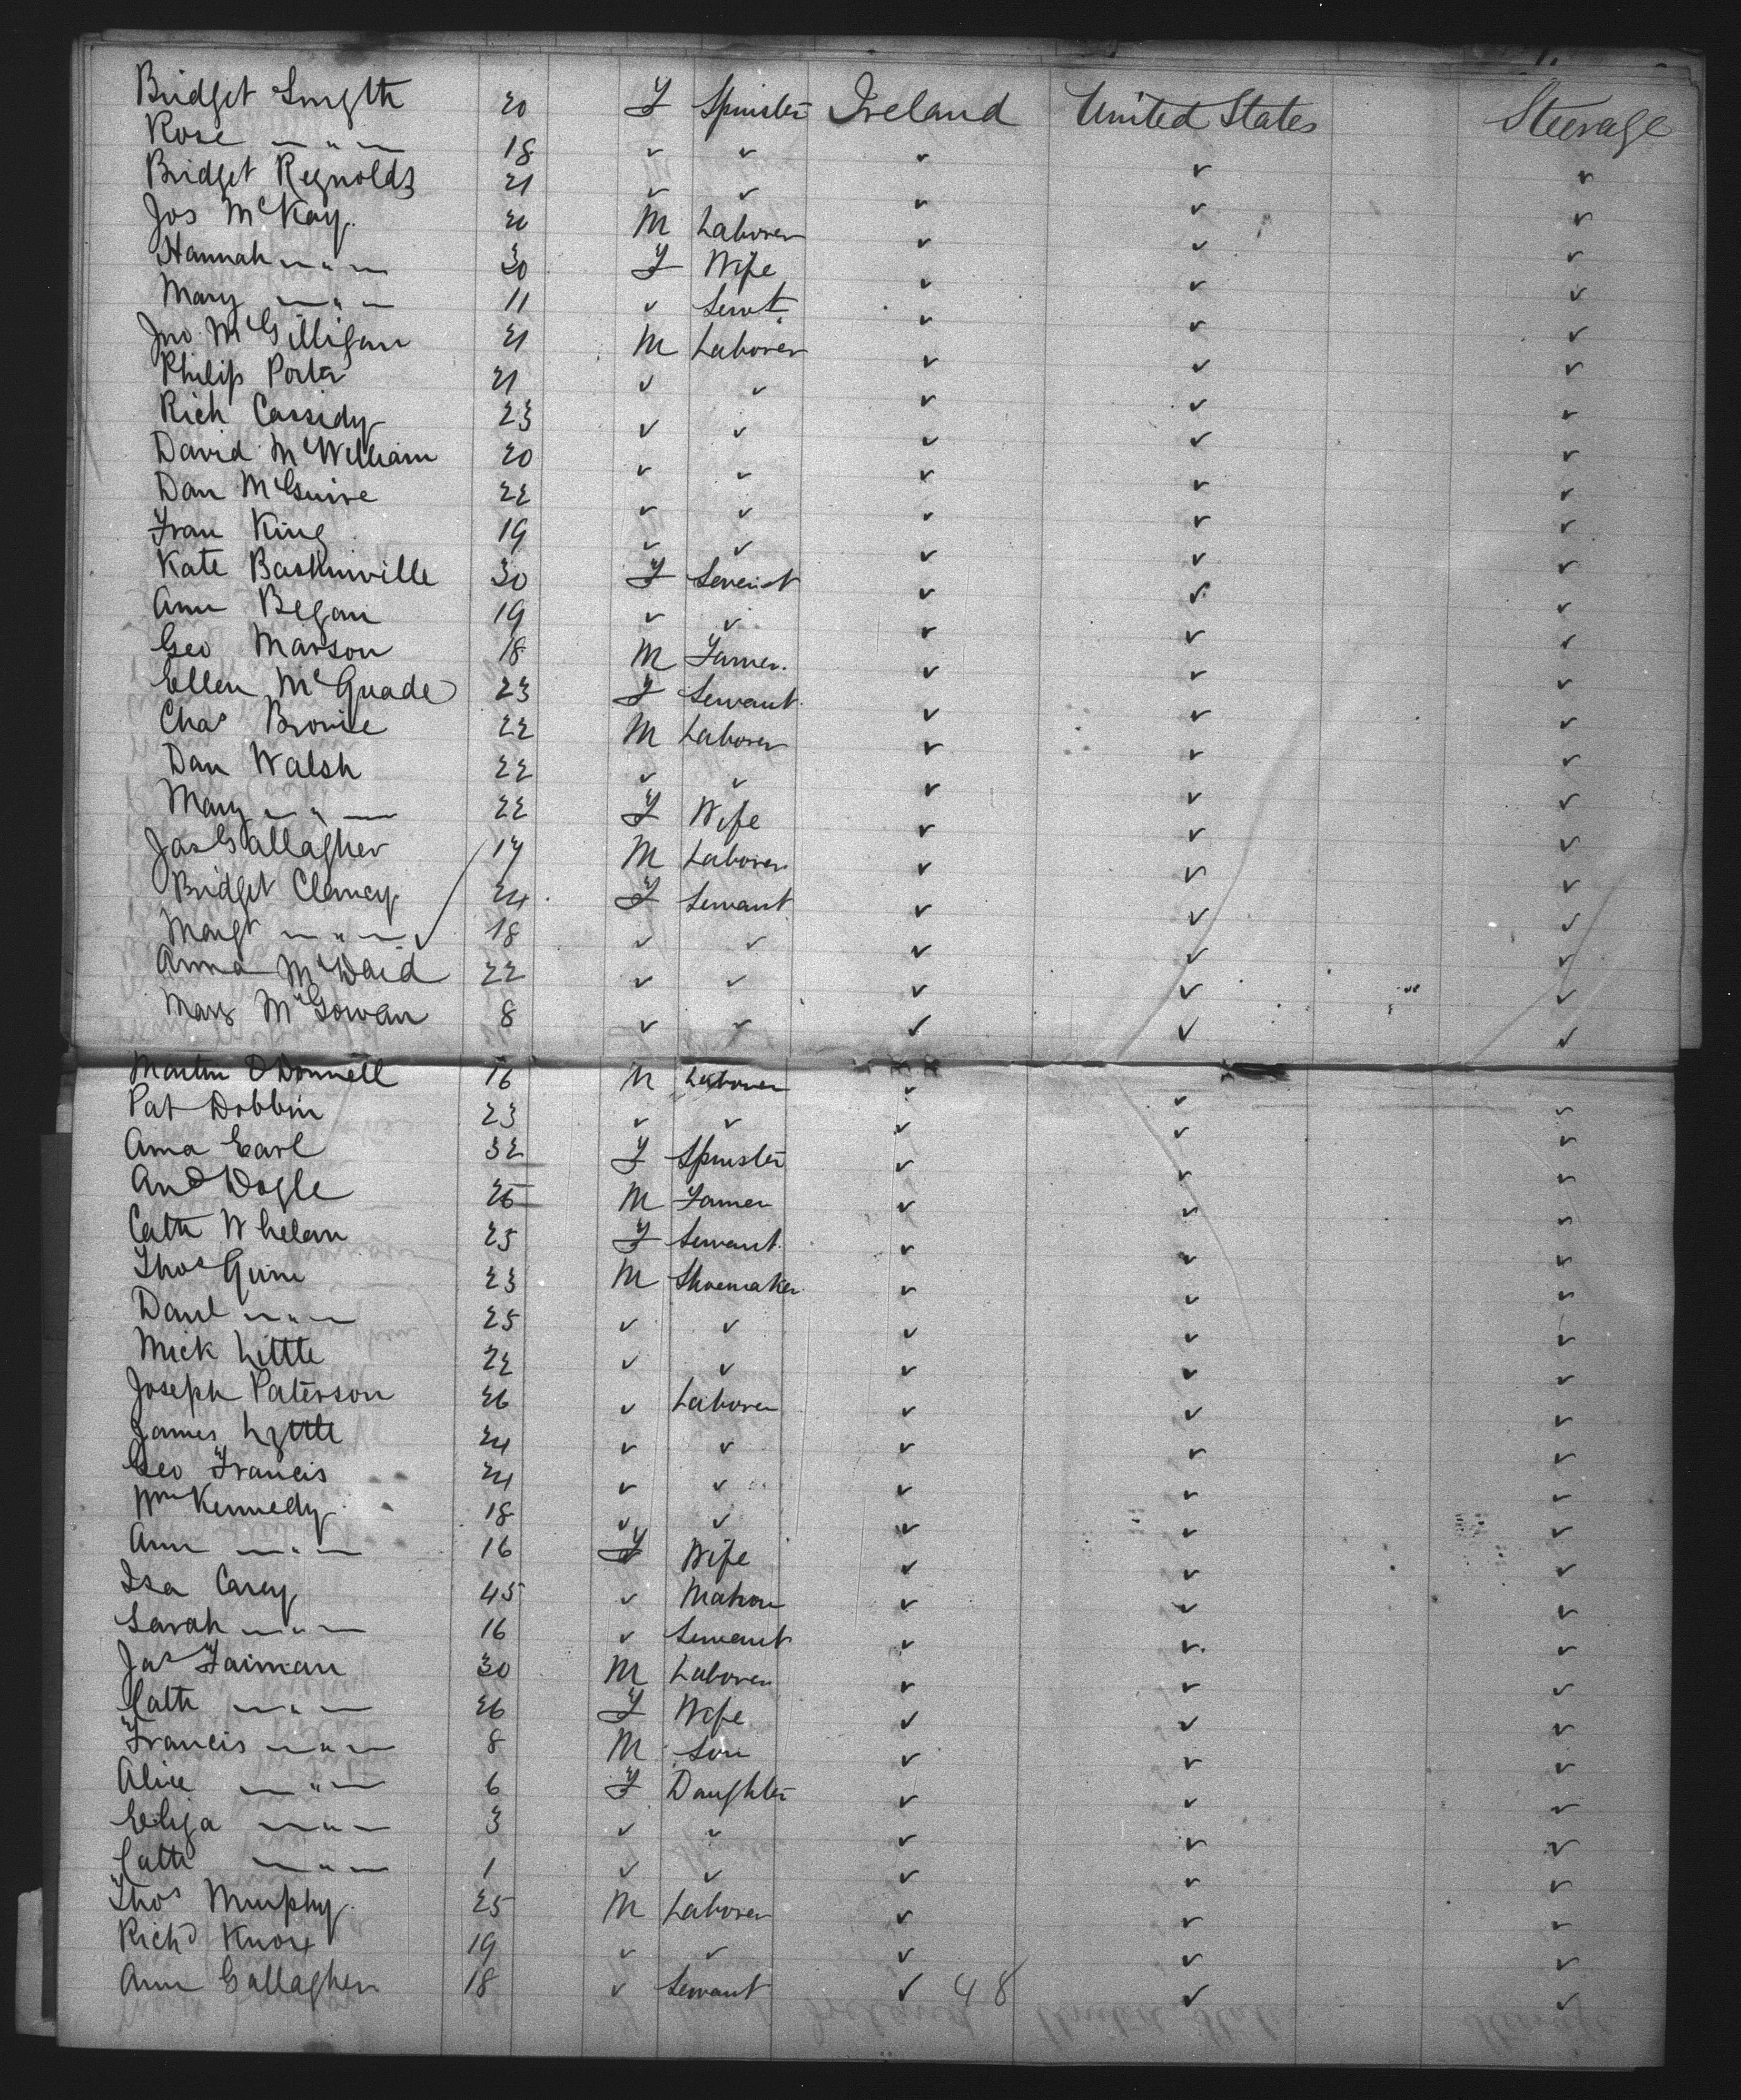 Bridget Smyth 20 F Spinster Ireland United States Steerage
Rose — " — 18 ✓ ✓ ✓ ✓ ✓
Bridget Reynolds 21 ✓ ✓ ✓ ✓ ✓
Jos McKay 26 M Laborer ✓ ✓ ✓
Hannah — " — 30 F Wife ✓ ✓ ✓
Mary — " — 11 ✓ Servt ✓ ✓ ✓
Jno McGilligan 21 M Laborer ✓ ✓ ✓
Philip Porter 21 ✓ ✓ ✓ ✓ ✓
Rich Cassidy 23 ✓ ✓ ✓ ✓ ✓
David McWilliam 20 ✓ ✓ ✓ ✓ ✓
Dan McGuire 22 ✓ ✓ ✓ ✓ ✓
Fran King 19 ✓ ✓ ✓ ✓ ✓
Kate Baskinville 30 F Servant ✓ ✓ ✓
Ann Began 19 ✓ ✓ ✓ ✓ ✓
Geo Marson 18 M Farmer ✓ ✓ ✓
Ellen McQuade 23 F Servant ✓ ✓ ✓
Chas Browne 22 M Laborer ✓ ✓ ✓
Dan Walsh 22 ✓ ✓ ✓ ✓ ✓
Mary — " — 22 F Wife ✓ ✓ ✓
Jas Gallagher 17 M Laborer ✓ ✓ ✓
Bridget Clancy 24 F Servant ✓ ✓ ✓
Margt — " — 18 ✓ ✓ ✓ ✓ ✓
Anna McDaid 22 ✓ ✓ ✓ ✓ ✓
Mary McGowan 8 ✓ ✓ ✓ ✓ ✓
Martin O Donnell 16 M Laborer ✓ ✓ ✓
Pat Dobbin 23 ✓ ✓ ✓ ✓ ✓
Anna Earl 32 F Spinster ✓ ✓ ✓
And Dogle 26 M Farmer ✓ ✓ ✓
Cath Whelan 25 F Servant ✓ ✓ ✓
Thos Quinn 23 M Shoemaker ✓ ✓ ✓
Danl — " — 25 ✓ ✓ ✓ ✓ ✓
Mick Little 22 ✓ ✓ ✓ ✓ ✓
Joseph Paterson 26 ✓ Laborer ✓ ✓ ✓
James Lyttle 24 ✓ ✓ ✓ ✓ ✓
Geo Francis 24 ✓ ✓ ✓ ✓ ✓
Wm Kennedy 18 ✓ ✓ ✓ ✓ ✓
Ann — " — 16 F Wife ✓ ✓ ✓
Isa Carey 45 ✓ Matron ✓ ✓ ✓
Sarah — " — 16 ✓ Servant ✓ ✓ ✓
Jas Faiman 30 M Laborer ✓ ✓ ✓
Cath — " — 26 F Wife ✓ ✓ ✓
Francis — " — 8 M Son ✓ ✓ ✓
Alice — " — 6 F Daughter ✓ ✓ ✓
Eliza — " — 3 ✓ ✓ ✓ ✓ ✓
Cath — " — 1 ✓ ✓ ✓ ✓ ✓
Thos Murphy 25 M Laborer ✓ ✓ ✓
Richd Knox 19 ✓ ✓ ✓ ✓ ✓
Ann Gallagher 18 ✓ Servant ✓ 48 ✓ ✓